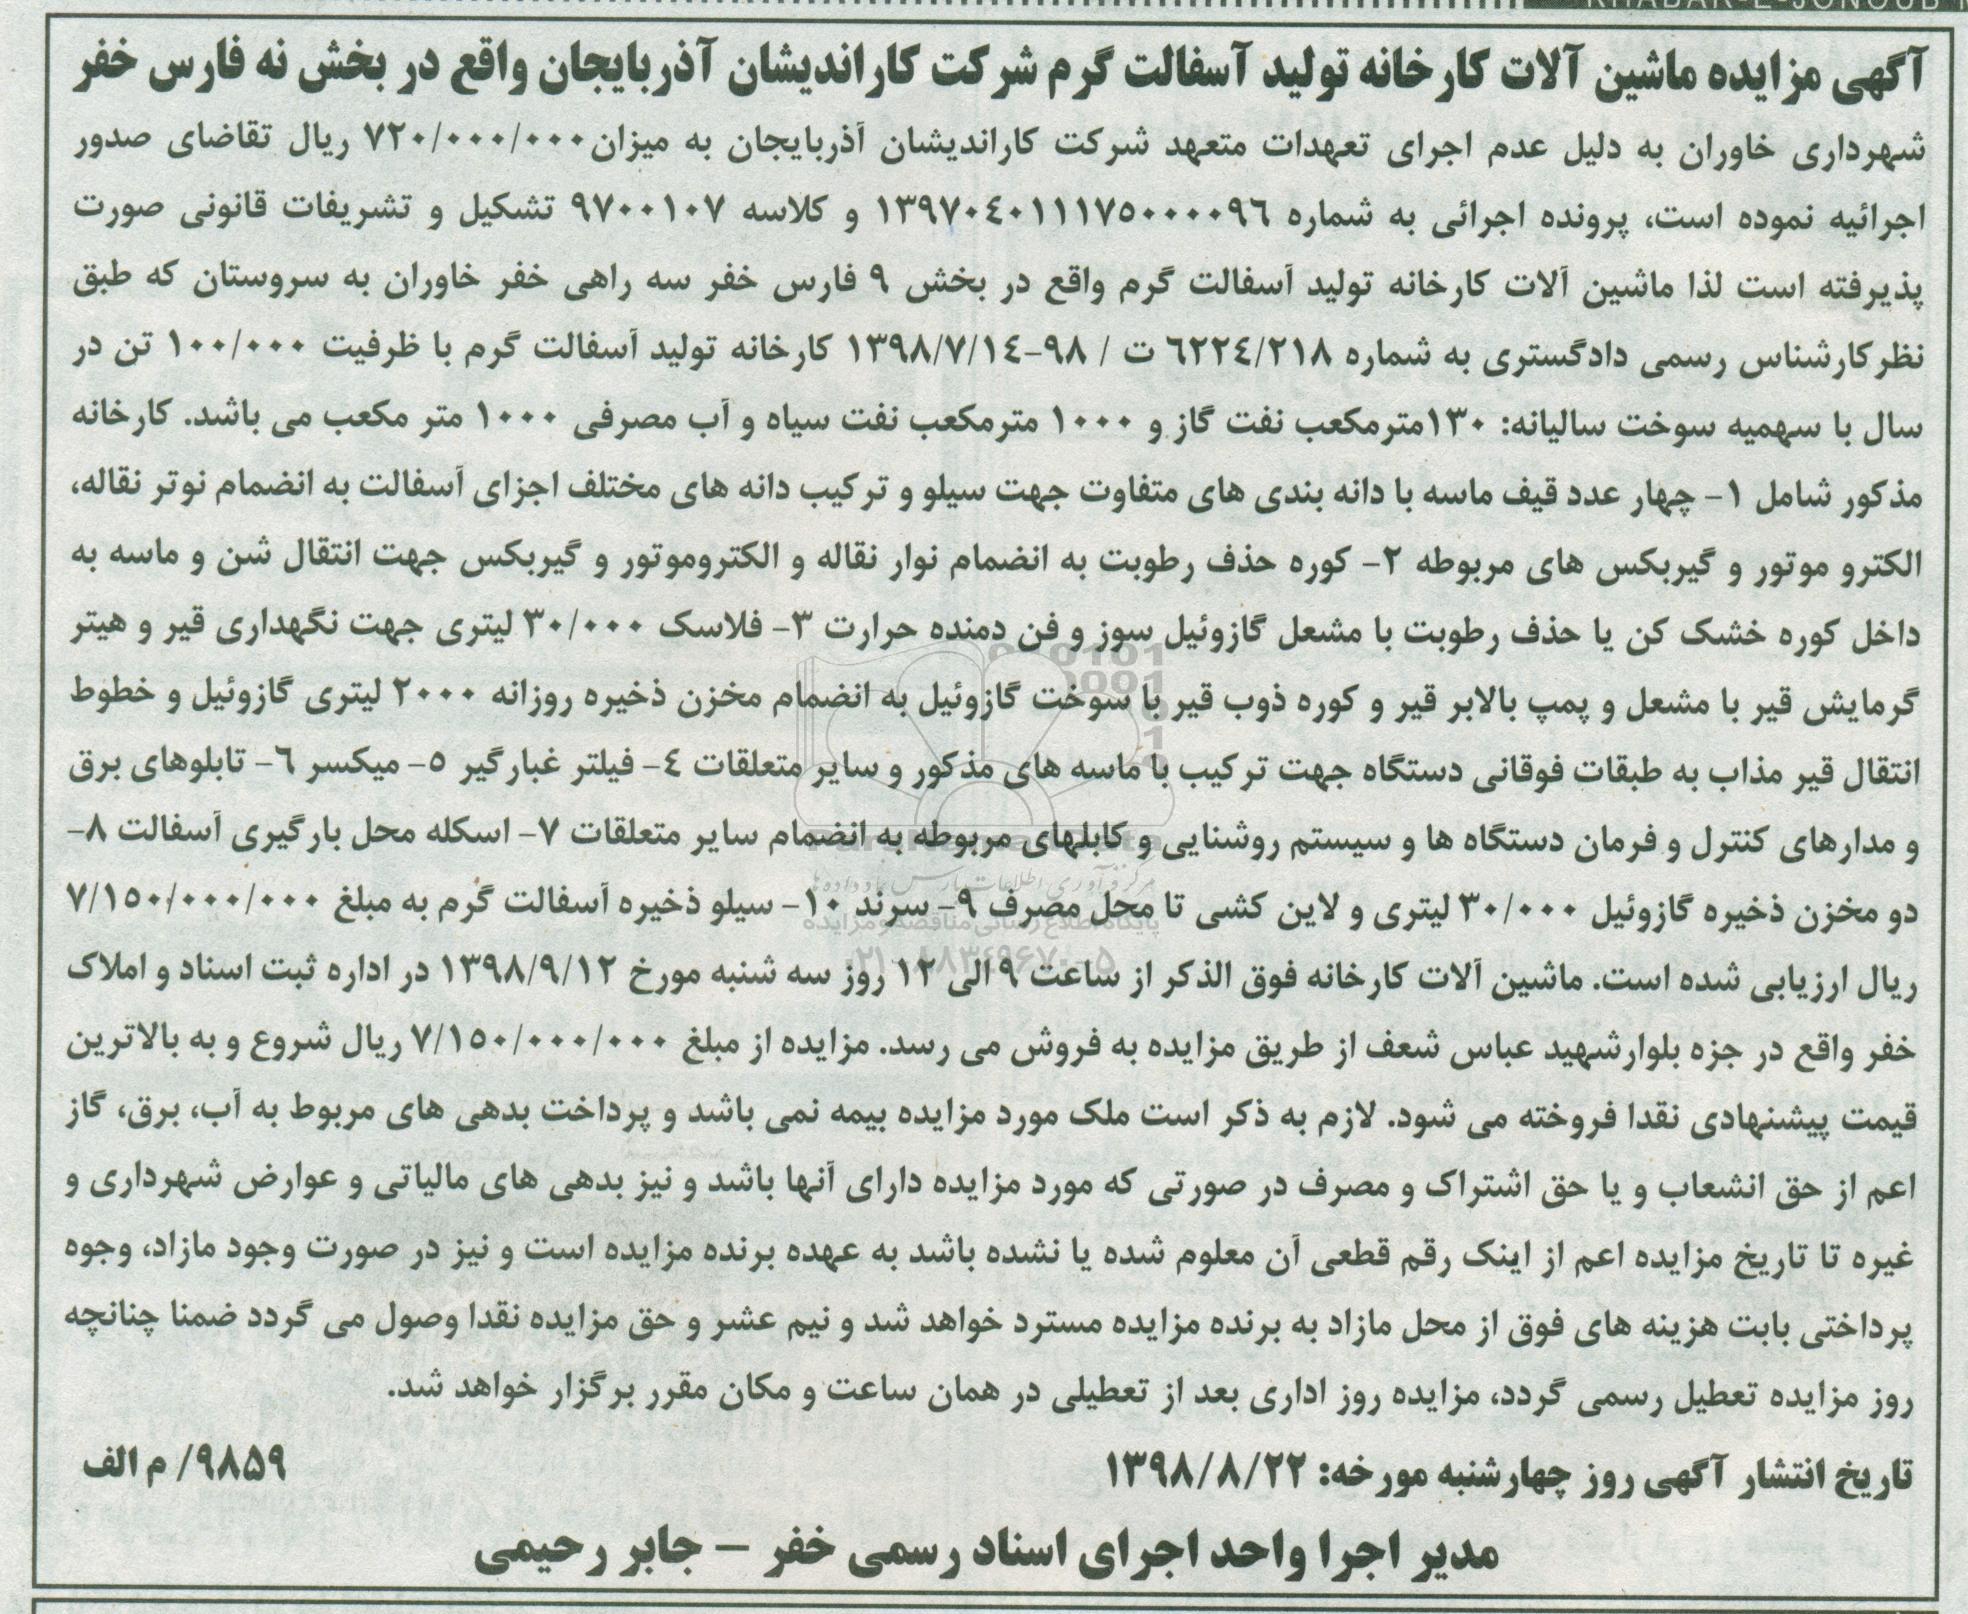 KHABAR-E-JONOUB
آگهی مزایده ماشین آلات کارخانه تولید آسفالت گرم شرکت کاراندیشان آذربایجان واقع در بخش نه فارس خفر
شهرداری خاوران به دلیل عدم اجرای تعهدات متعهد شرکت کاراندیشان آذربایجان به میزان۷۲۰/۰۰۰/۰۰۰ ریال تقاضای صدور
اجرائیه نموده است، پرونده اجرائی به شماره ۱۳۹۷۰٤۰۱۱۱۷۵۰۰۰۰۹٦ و کلاسه ۹۷۰۰۱۰۷ تشکیل و تشریفات قانونی صورت
پذیرفته است لذا ماشین آلات کارخانه تولید آسفالت گرم واقع در بخش ۹ فارس خفر سه راهی خفر خاوران به سروستان که طبق
نظر کارشناس رسمی دادگستری به شماره ٦۲۲٤/۲۱۸ ت / ۹۸-۱۳۹۸/۷/۱٤ کارخانه تولید آسفالت گرم با ظرفیت ۱۰۰/۰۰۰ تن در
سال با سهمیه سوخت سالیانه: ۱۳۰مترمکعب نفت گاز و ۱۰۰۰ مترمکعب نفت سیاه و آب مصرفی ۱۰۰۰ متر مکعب می باشد. کارخانه
مذکور شامل ۱- چهار عدد قیف ماسه با دانه بندی های متفاوت جهت سیلو و ترکیب دانه های مختلف اجزای آسفالت به انضمام نوتر نقاله،
الکترو موتور و گیربکس های مربوطه ۲- کوره حذف رطوبت به انضمام نوار نقاله و الکتروموتور و گیربکس جهت انتقال شن و ماسه به
داخل کوره خشک کن یا حذف رطوبت با مشعل گازوئیل سوز و فن دمنده حرارت ۳- فلاسک ۳۰/۰۰۰ لیتری جهت نگهداری قیر و هیتر
گرمایش قیر با مشعل و پمپ بالابر قیر و کوره ذوب قیر با سوخت گازوئیل به انضمام مخزن ذخیره روزانه ۲۰۰۰ لیتری گازوئیل و خطوط
انتقال قیر مذاب به طبقات فوقانی دستگاه جهت ترکیب با ماسه های مذکور و سایر متعلقات ٤- فیلتر غبارگیر ۵- میکسر ٦- تابلوهای برق
و مدارهای کنترل و فرمان دستگاه ها و سیستم روشنایی و کابلهای مربوطه به انضمام سایر متعلقات ۷- اسکله محل بارگیری آسفالت ۸-
دو مخزن ذخیره گازوئیل ۳۰/۰۰۰ لیتری و لاین کشی تا محل مصرف ۹- سرند ۱۰- سیلو ذخیره آسفالت گرم به مبلغ ۷/۱۵۰/۰۰۰/۰۰۰
ریال ارزیابی شده است. ماشین آلات کارخانه فوق الذکر از ساعت ۹ الی ۱۲ روز سه شنبه مورخ ۱۳۹۸/۹/۱۲ در اداره ثبت اسناد و املاک
خفر واقع در جزه بلوارشهید عباس شعف از طریق مزایده به فروش می رسد. مزایده از مبلغ ۷/۱۵۰/۰۰۰/۰۰۰ ریال شروع و به بالاترین
قیمت پیشنهادی نقدا فروخته می شود. لازم به ذکر است ملک مورد مزایده بیمه نمی باشد و پرداخت بدهی های مربوط به آب، برق، گاز
اعم از حق انشعاب و یا حق اشتراک و مصرف در صورتی که مورد مزایده دارای آنها باشد و نیز بدهی های مالیاتی و عوارض شهرداری و
غیره تا تاریخ مزایده اعم از اینک رقم قطعی آن معلوم شده یا نشده باشد به عهده برنده مزایده است و نیز در صورت وجود مازاد، وجوه
پرداختی بابت هزینه های فوق از محل مازاد به برنده مزایده مسترد خواهد شد و نیم عشر و حق مزایده نقدا وصول می گردد ضمنا چنانچه
روز مزایده تعطیل رسمی گردد، مزایده روز اداری بعد از تعطیلی در همان ساعت و مکان مقرر برگزار خواهد شد.
تاریخ انتشار آگهی روز چهارشنبه مورخه: ۱۳۹۸/۸/۲۲
۹۸۵۹/ م الف
مدیر اجرا واحد اجرای اسناد رسمی خفر – جابر رحیمی
پایگاه اطلاع رسانی مناقصه و مزایده